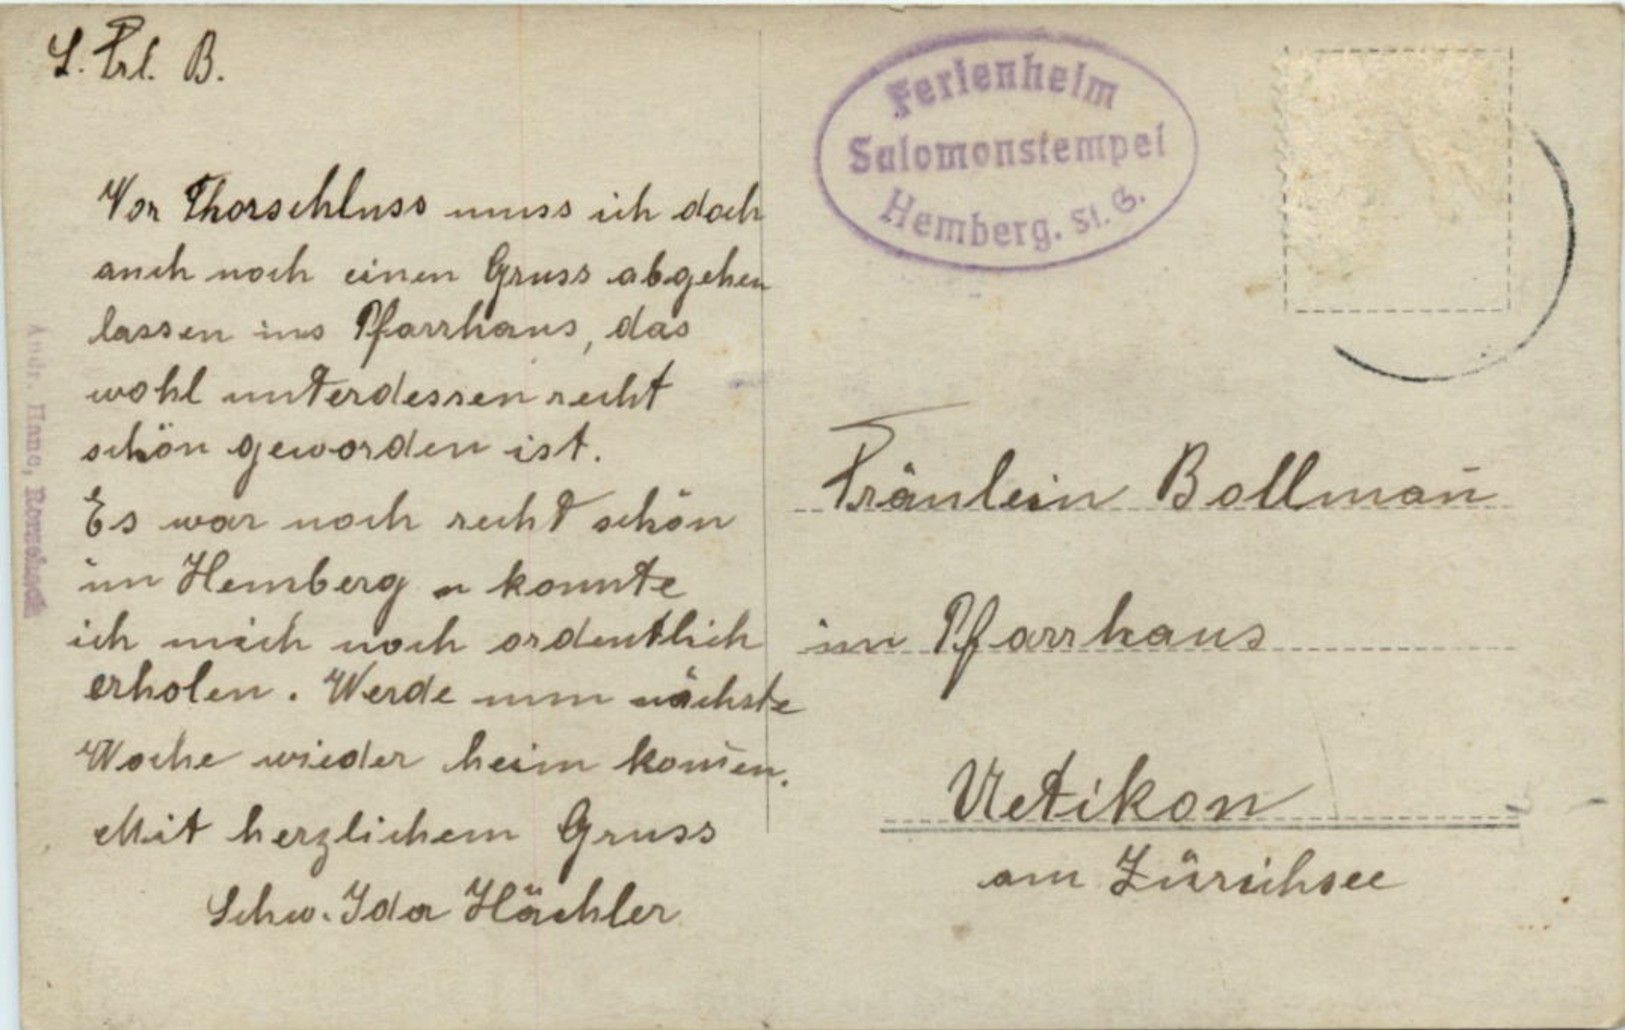 L. Frl. B.
Vor Thorschluss muss ich doch
auch noch einen Gruss abgehen
lassen ins Pfarrhaus, das
wohl unterdessen recht
schön geworden ist.
Es war noch recht schön
im Hemberg u konnte
ich mich noch ordentlich
erholen. Werde nun nächste
Woche wieder heim kom̄en.
Mit herzlichem Gruss
Schw. Ida Hächler
Ferienheim
Salomonstempel
Hemberg. St. G.
Fräulein Bollman̄
im Pfarrhaus
Uetikon
am Zürichsee
Andr. Hane, Rorschach